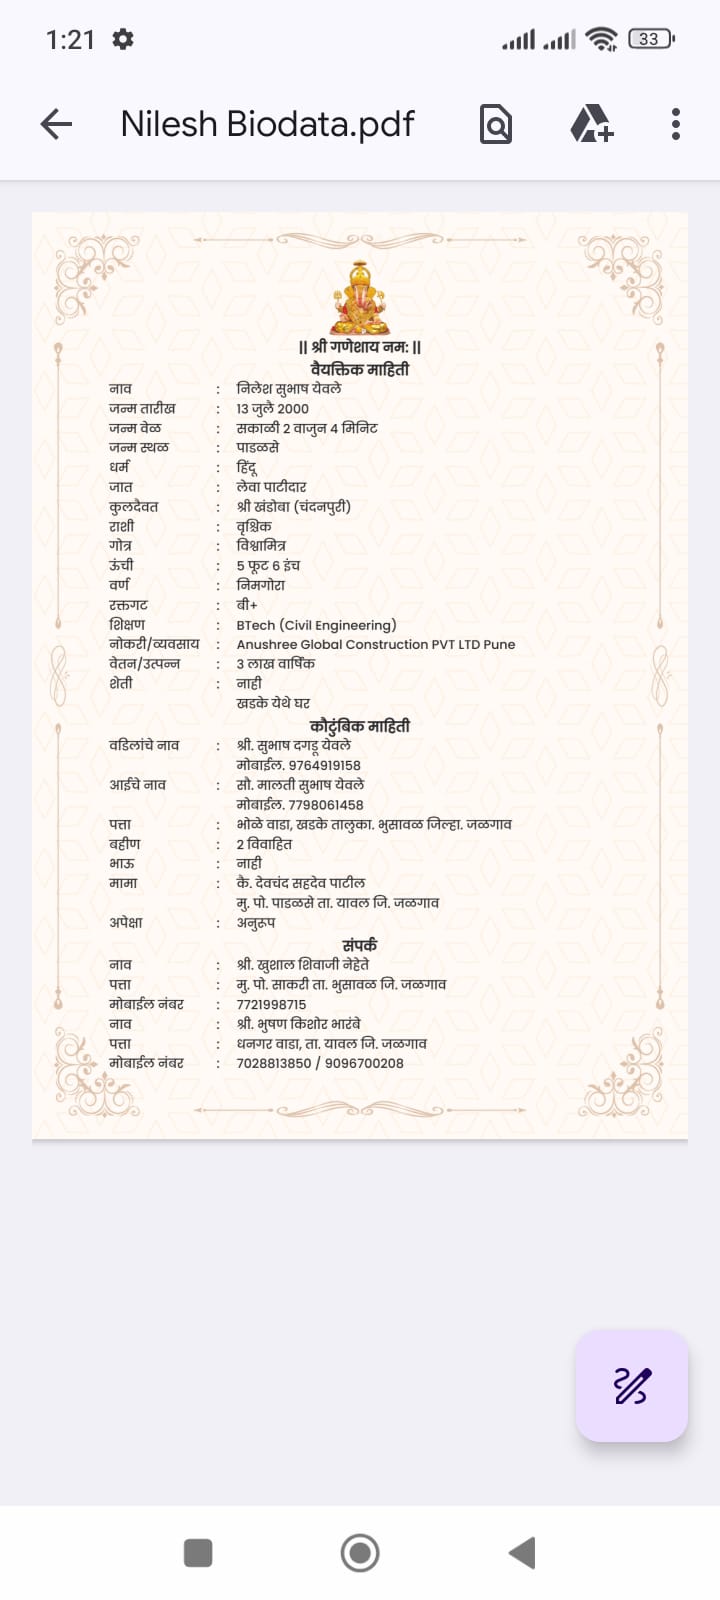 1:21
33
Nilesh Biodata.pdf
|| श्री गणेशाय नम: ||
वैयक्तिक माहिती
नाव : निलेश सुभाष येवले
जन्म तारीख : 13 जुलै 2000
जन्म वेळ : सकाळी 2 वाजुन 4 मिनिट
जन्म स्थळ : पाडळसे
धर्म : हिंदू
जात : लेवा पाटीदार
कुलदैवत : श्री खंडोबा (चंदनपुरी)
राशी : वृश्चिक
गोत्र : विश्वामित्र
ऊंची : 5 फूट 6 इंच
वर्ण : निमगोरा
रक्तगट : बी+
शिक्षण : BTech (Civil Engineering)
नोकरी/व्यवसाय : Anushree Global Construction PVT LTD Pune
वेतन/उत्पन्न : 3 लाख वार्षिक
शेती : नाही
खडके येथे घर
कौटुंबिक माहिती
वडिलांचे नाव : श्री. सुभाष दगडू येवले
मोबाईल. 9764919158
आईचे नाव : सौ. मालती सुभाष येवले
मोबाईल. 7798061458
पत्ता : भोळे वाडा, खडके तालुका. भुसावळ जिल्हा. जळगाव
बहीण : 2 विवाहित
भाऊ : नाही
मामा : कै. देवचंद सहदेव पाटील
मु. पो. पाडळसे ता. यावल जि. जळगाव
अपेक्षा : अनुरूप
संपर्क
नाव : श्री. खुशाल शिवाजी नेहेते
पत्ता : मु. पो. साकरी ता. भुसावळ जि. जळगाव
मोबाईल नंबर : 7721998715
नाव : श्री. भुषण किशोर भारंबे
पत्ता : धनगर वाडा, ता. यावल जि. जळगाव
मोबाईल नंबर : 7028813850 / 9096700208